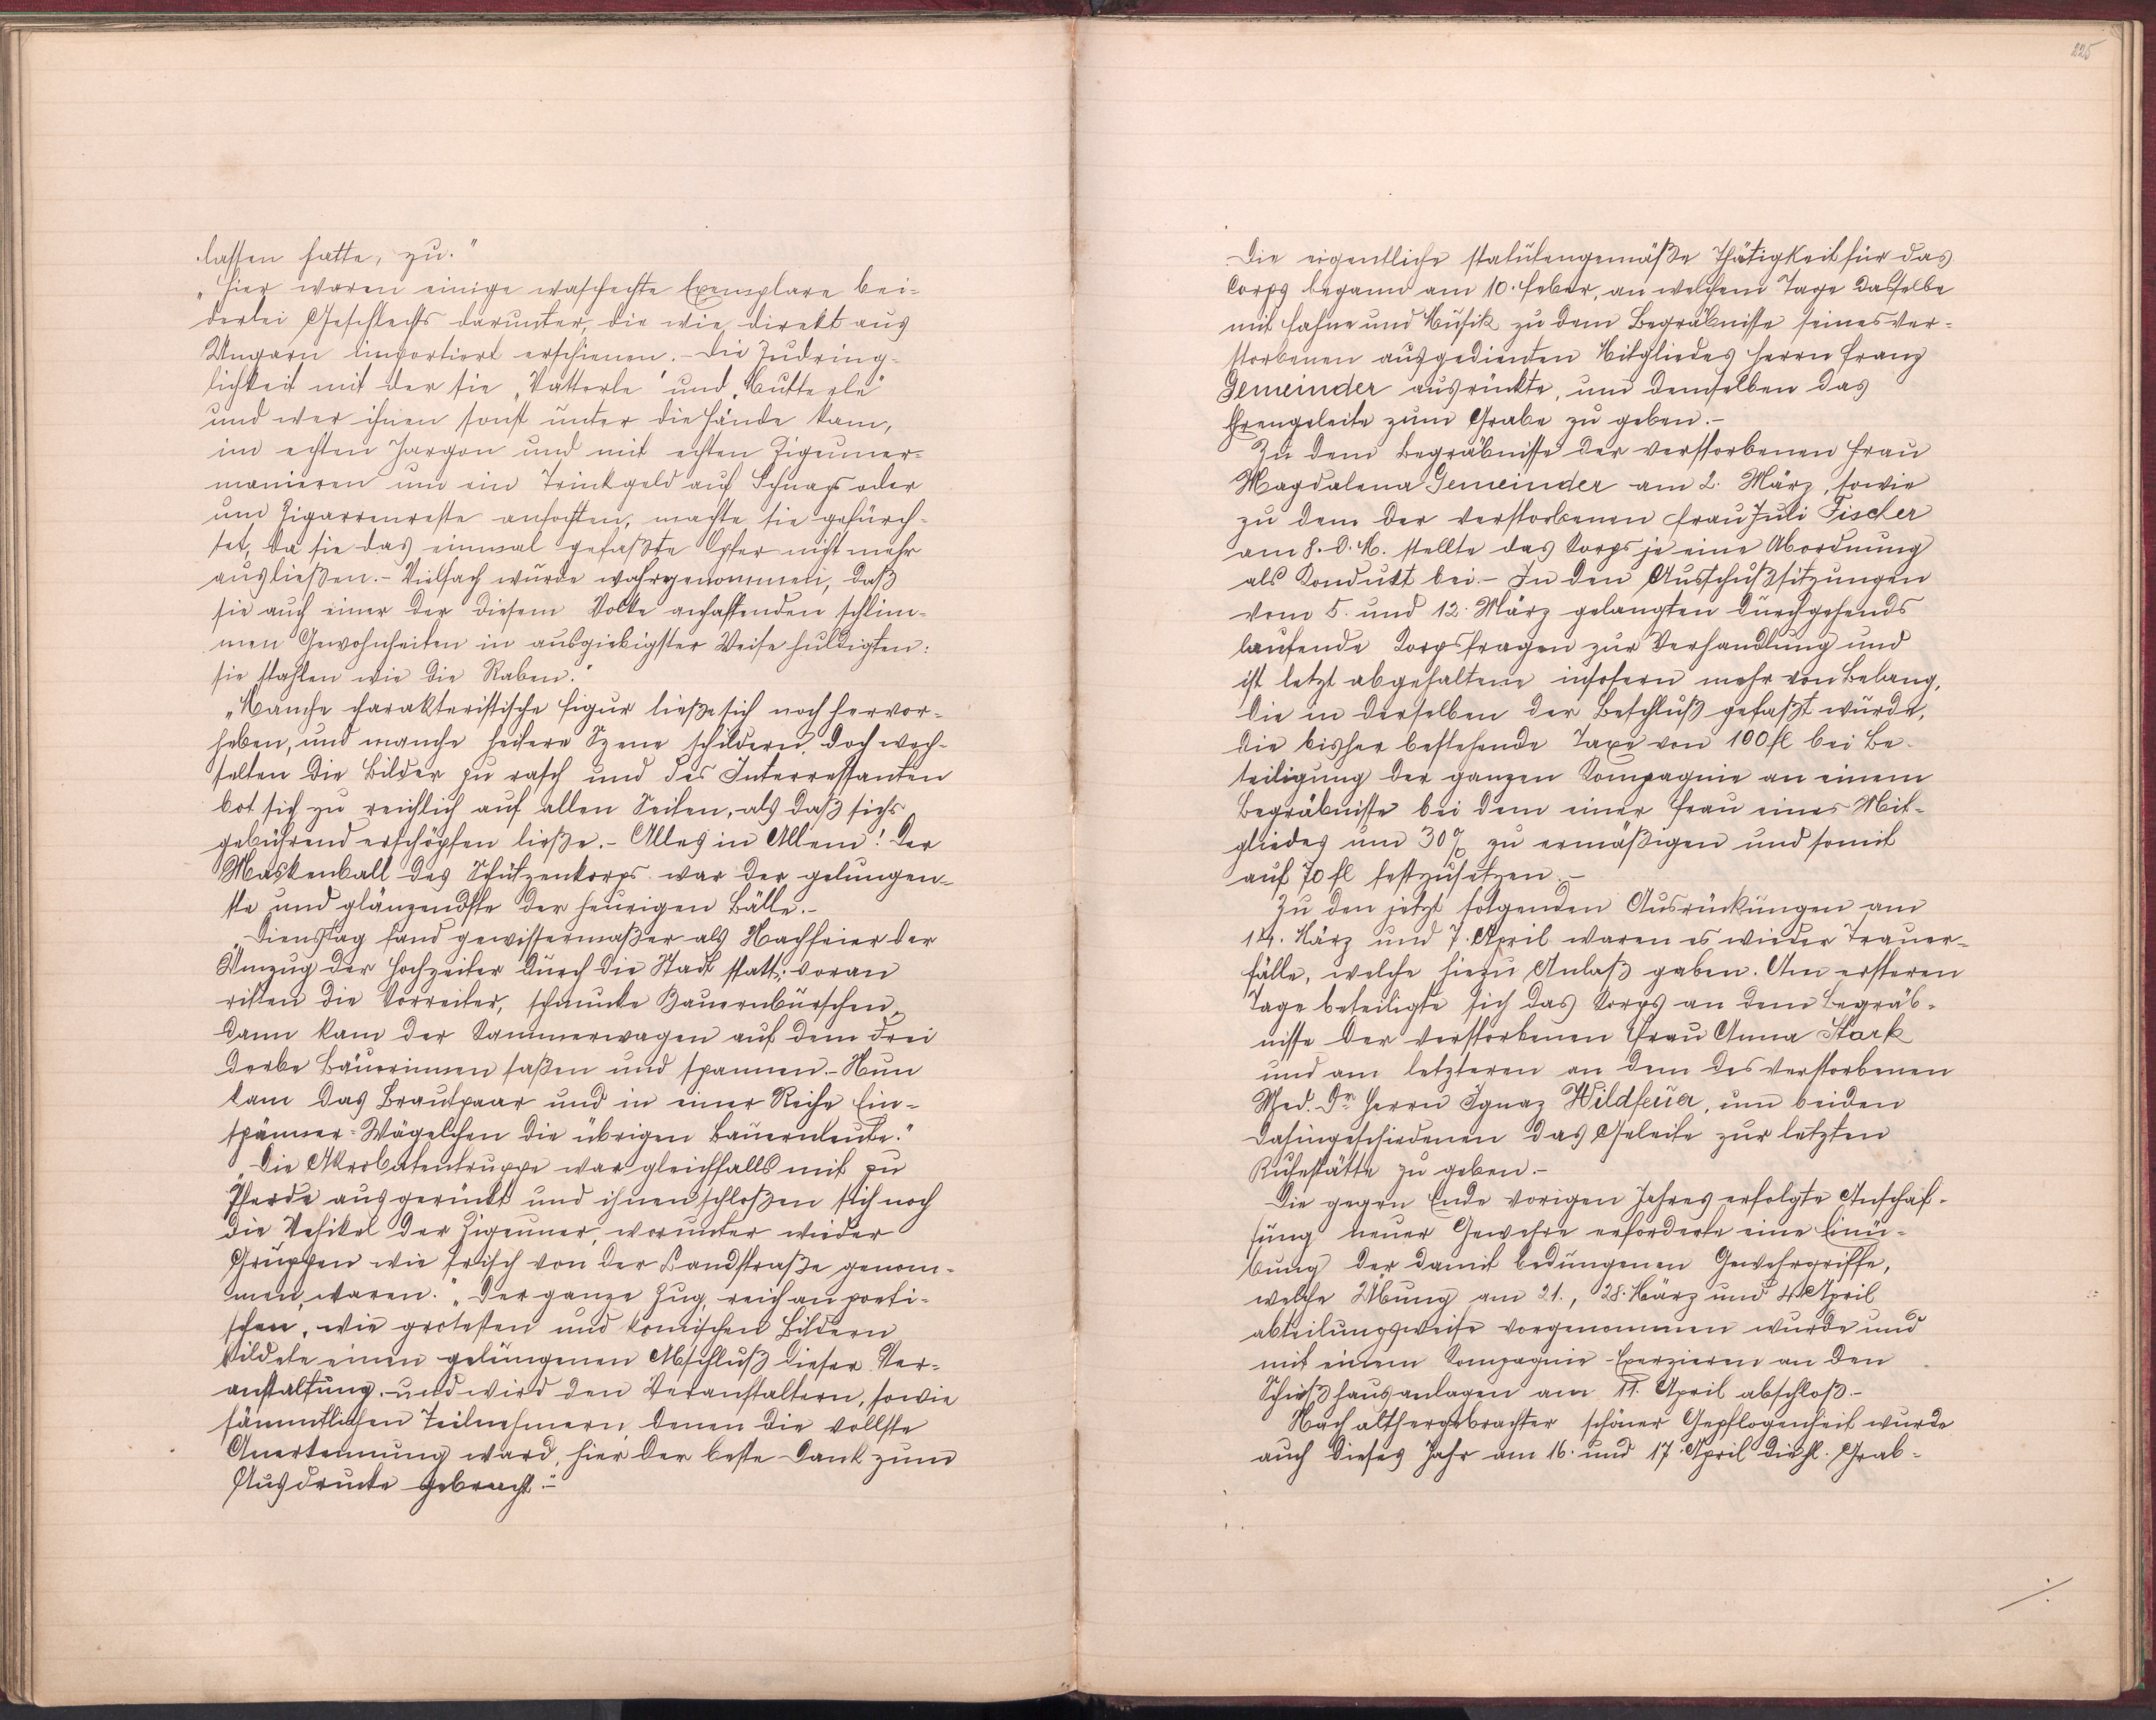 lassen hatte, zu."
"Hier waren einige waschechte Exemplare bei-
derlei Geschlechts darunter, die wie direkt aus
Ungarn importiert erschienen. Die Zudring-
lichkeit mit der sie "Vatterle" und "Mutterle"
und wer ihnen sonst unter die Hände kam,
im echten Jargon und mit echten Zigeuner-
manieren um ein Trinkgeld auf Schnaps oder
um Zigarrenreste anfochten, machte sie gefürch-
tet, da sie das einmal gefaßte Opfer nicht mehr
ausließen.- Vielfach wurde wahrgenommen, daß
sie auch einer der diesem Volke anhaftenden schlim-
men Gewohnheiten in ausgiebigster Weise huldigten:
sie stahlen wie die Raben."
"Manche charakteristische Figur ließe sich noch hervor-
heben, und manche heitere Szene schildern, doch wech-
selten die Bilder zu rasch und des Interressanten
bot sich zu reichlich auf allen Seiten, als daß sichs
gebührend erschöpfen ließe.- Alles in Allem! Der
Maskenball des Schützenkorps war der gelungen-
ste und glänzendste der heurigen Bälle.-
"Dienstag fand gewissermaßer als Nachfeier der
Umzug der Hochzeiter durch die Stadt statt; voran
ritten die Vorreiter, schmucke Bauernburschen,
dann kam der Kammerwagen auf dem drei
derbe Bäuerinnen saßen und spannen.- Nun
kam das Brautpaar und in einer Reihe Ein-
spänner-Wägelchen die übrigen Bauernleute."
"Die Akrobatentruppe war gleichfalls mit zu
Pferde ausgerückt und ihnen schloßen sich noch
die Vehikel der Zigeuner, worunter wieder
Gruppen wie frisch von der Landstraße genom-
men, waren." "Der ganze Zug, reich an poeti-
schen, wie grotesken und komischen Bildern
bildete einen gelungenen Abschluß dieser Ver-
anstaltung, und wird den Veranstaltern, sowie
sämmtlichen Teilnehmern, denen die vollste
Anerkennung ward, hier der beste Dank zum
Ausdrucke gebracht.-"
225
Die eigentliche statutengemäße Thätigkeit für das
Corps begann am 10. Feber, an welchem Tage dasselbe
mit Fahne und Musik zu dem Begräbnisse seines ver-
storbenen ausgedienten Mitgliedes Herrn Franz
Gemeinder ausrückte, um demselben das
Ehrengeleite zum Grabe zu geben.-
Zu dem Begräbnisse der verstorbenen Frau
Magdalena Gemeinder am 2. März, sowie
zu dem der verstorbenen Frau Juli Fischer
am 8. d. M. stellte das Korps je eine Abordnung
als Kondukt bei.- In den Ausschußsitzungen
vom 5. und 12. März gelangten durchgehends
laufende Korpsfragen zur Verhandlung und
ist letzt abgehaltene insofern mehr von Belang,
die in derselben der Beschluß gefaßt wurde,
die bisher bestehende Taxe von 100 fl bei Be-
teiligung der ganzen Kompagnie an einem
Begräbnisse bei dem einer Frau eines Mit-
gliedes um 30% zu ermäßigen und somit
auf 70 fl festzusetzen.-
Zu den jetzt folgenden Ausrückungen am
14. März und 7. April waren es wieder Trauer-
fälle, welche hiezu Anlaß gaben. Am ersteren
Tage beteiligte sich das Korps an dem Begräb-
nisse der verstorbenen Frau Anna Stark
und am letzteren an dem des verstorbenen
Med. Dr. Herrn Ignaz Wildfeuer, um beiden
dahingeschiedenen das Geleite zur letzten
Ruhestätte zu geben.-
Die gegen Ende vorigen Jahres erfolgte Anschaf-
fung neuer Gewehre erforderte eine Einü-
bung der damit bedungenen Gewehrgriffe,
welche Übung am 21., 28. März und 4. April
abteilungsweise vorgenommen wurde und
mit einem Kompagnie-Exerzieren an den
Schießhausanlagen am 11. April abschloß.-
Nach althergebrachter schöner Gepflogenheit wurde
auch dieses Jahr am 16. und 17. April die hl. Grab-
./.